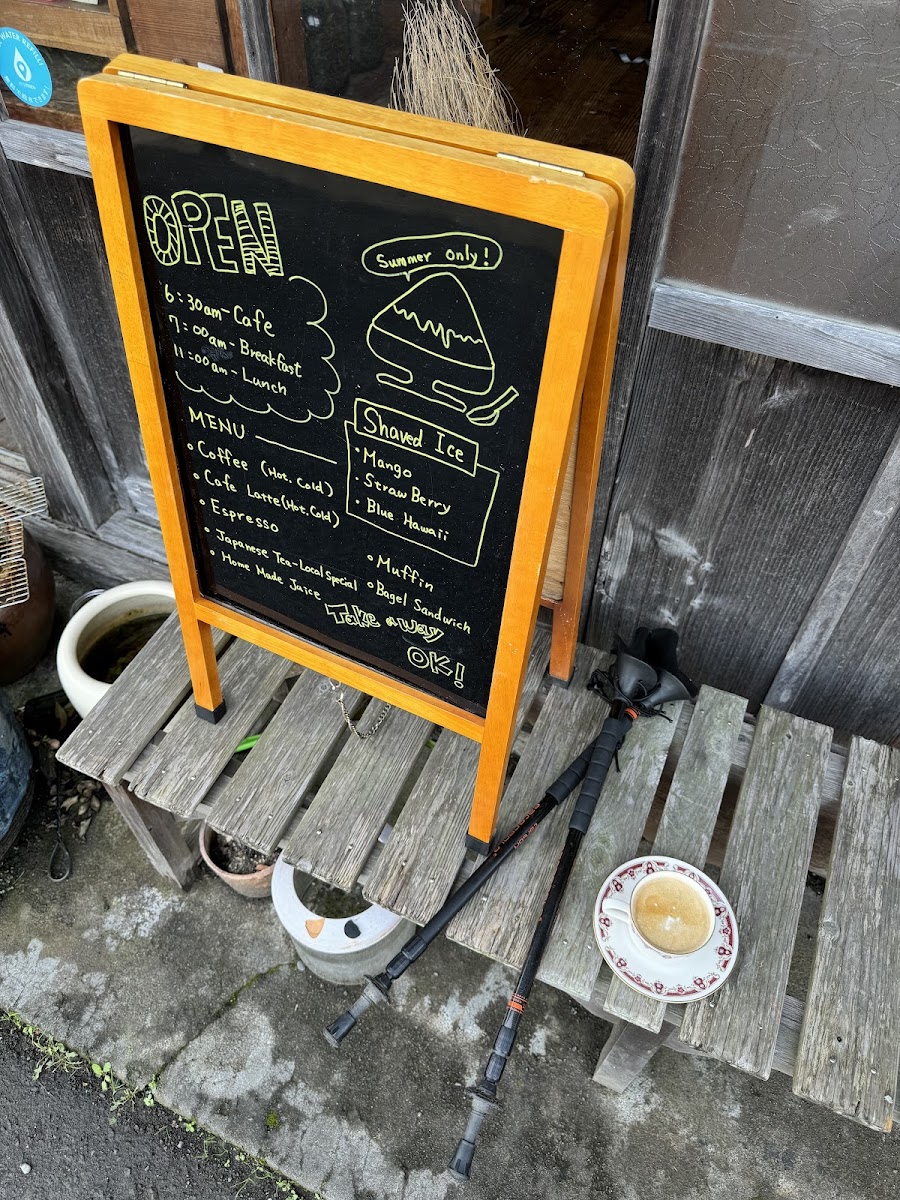 OPEN
6:30am - Cafe
7:00am - Breakfast
11:00am - Lunch
Summer only!
Shaved Ice
• Mango
• Straw Berry
• Blue Hawaii
MENU
• Coffee (Hot. Cold)
• Cafe Latte (Hot. Cold)
• Espresso
• Japanese Tea - Local Special
• Home Made Juice
• Muffin
• Bagel Sandwich
Take away
OK!